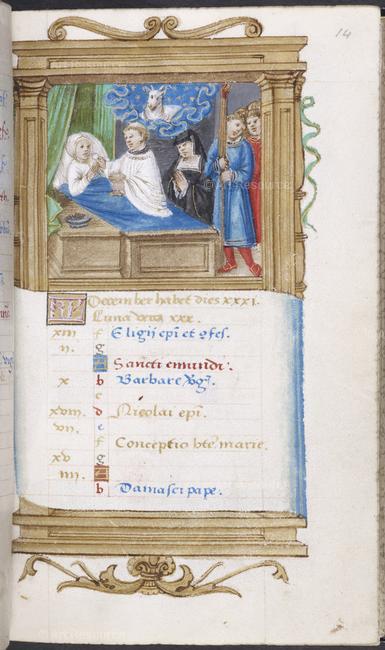 14
December habet dies xxxi.
Luna vero xxx.
xiii f Eligii epi et ofes.
ii. g
A Sancti emundi.
x b Barbare vg.
c
xviii. d Nicolai epi.
vii. e
f Conceptio bte marie.
xv g
iiii. A
b Damasci pape.